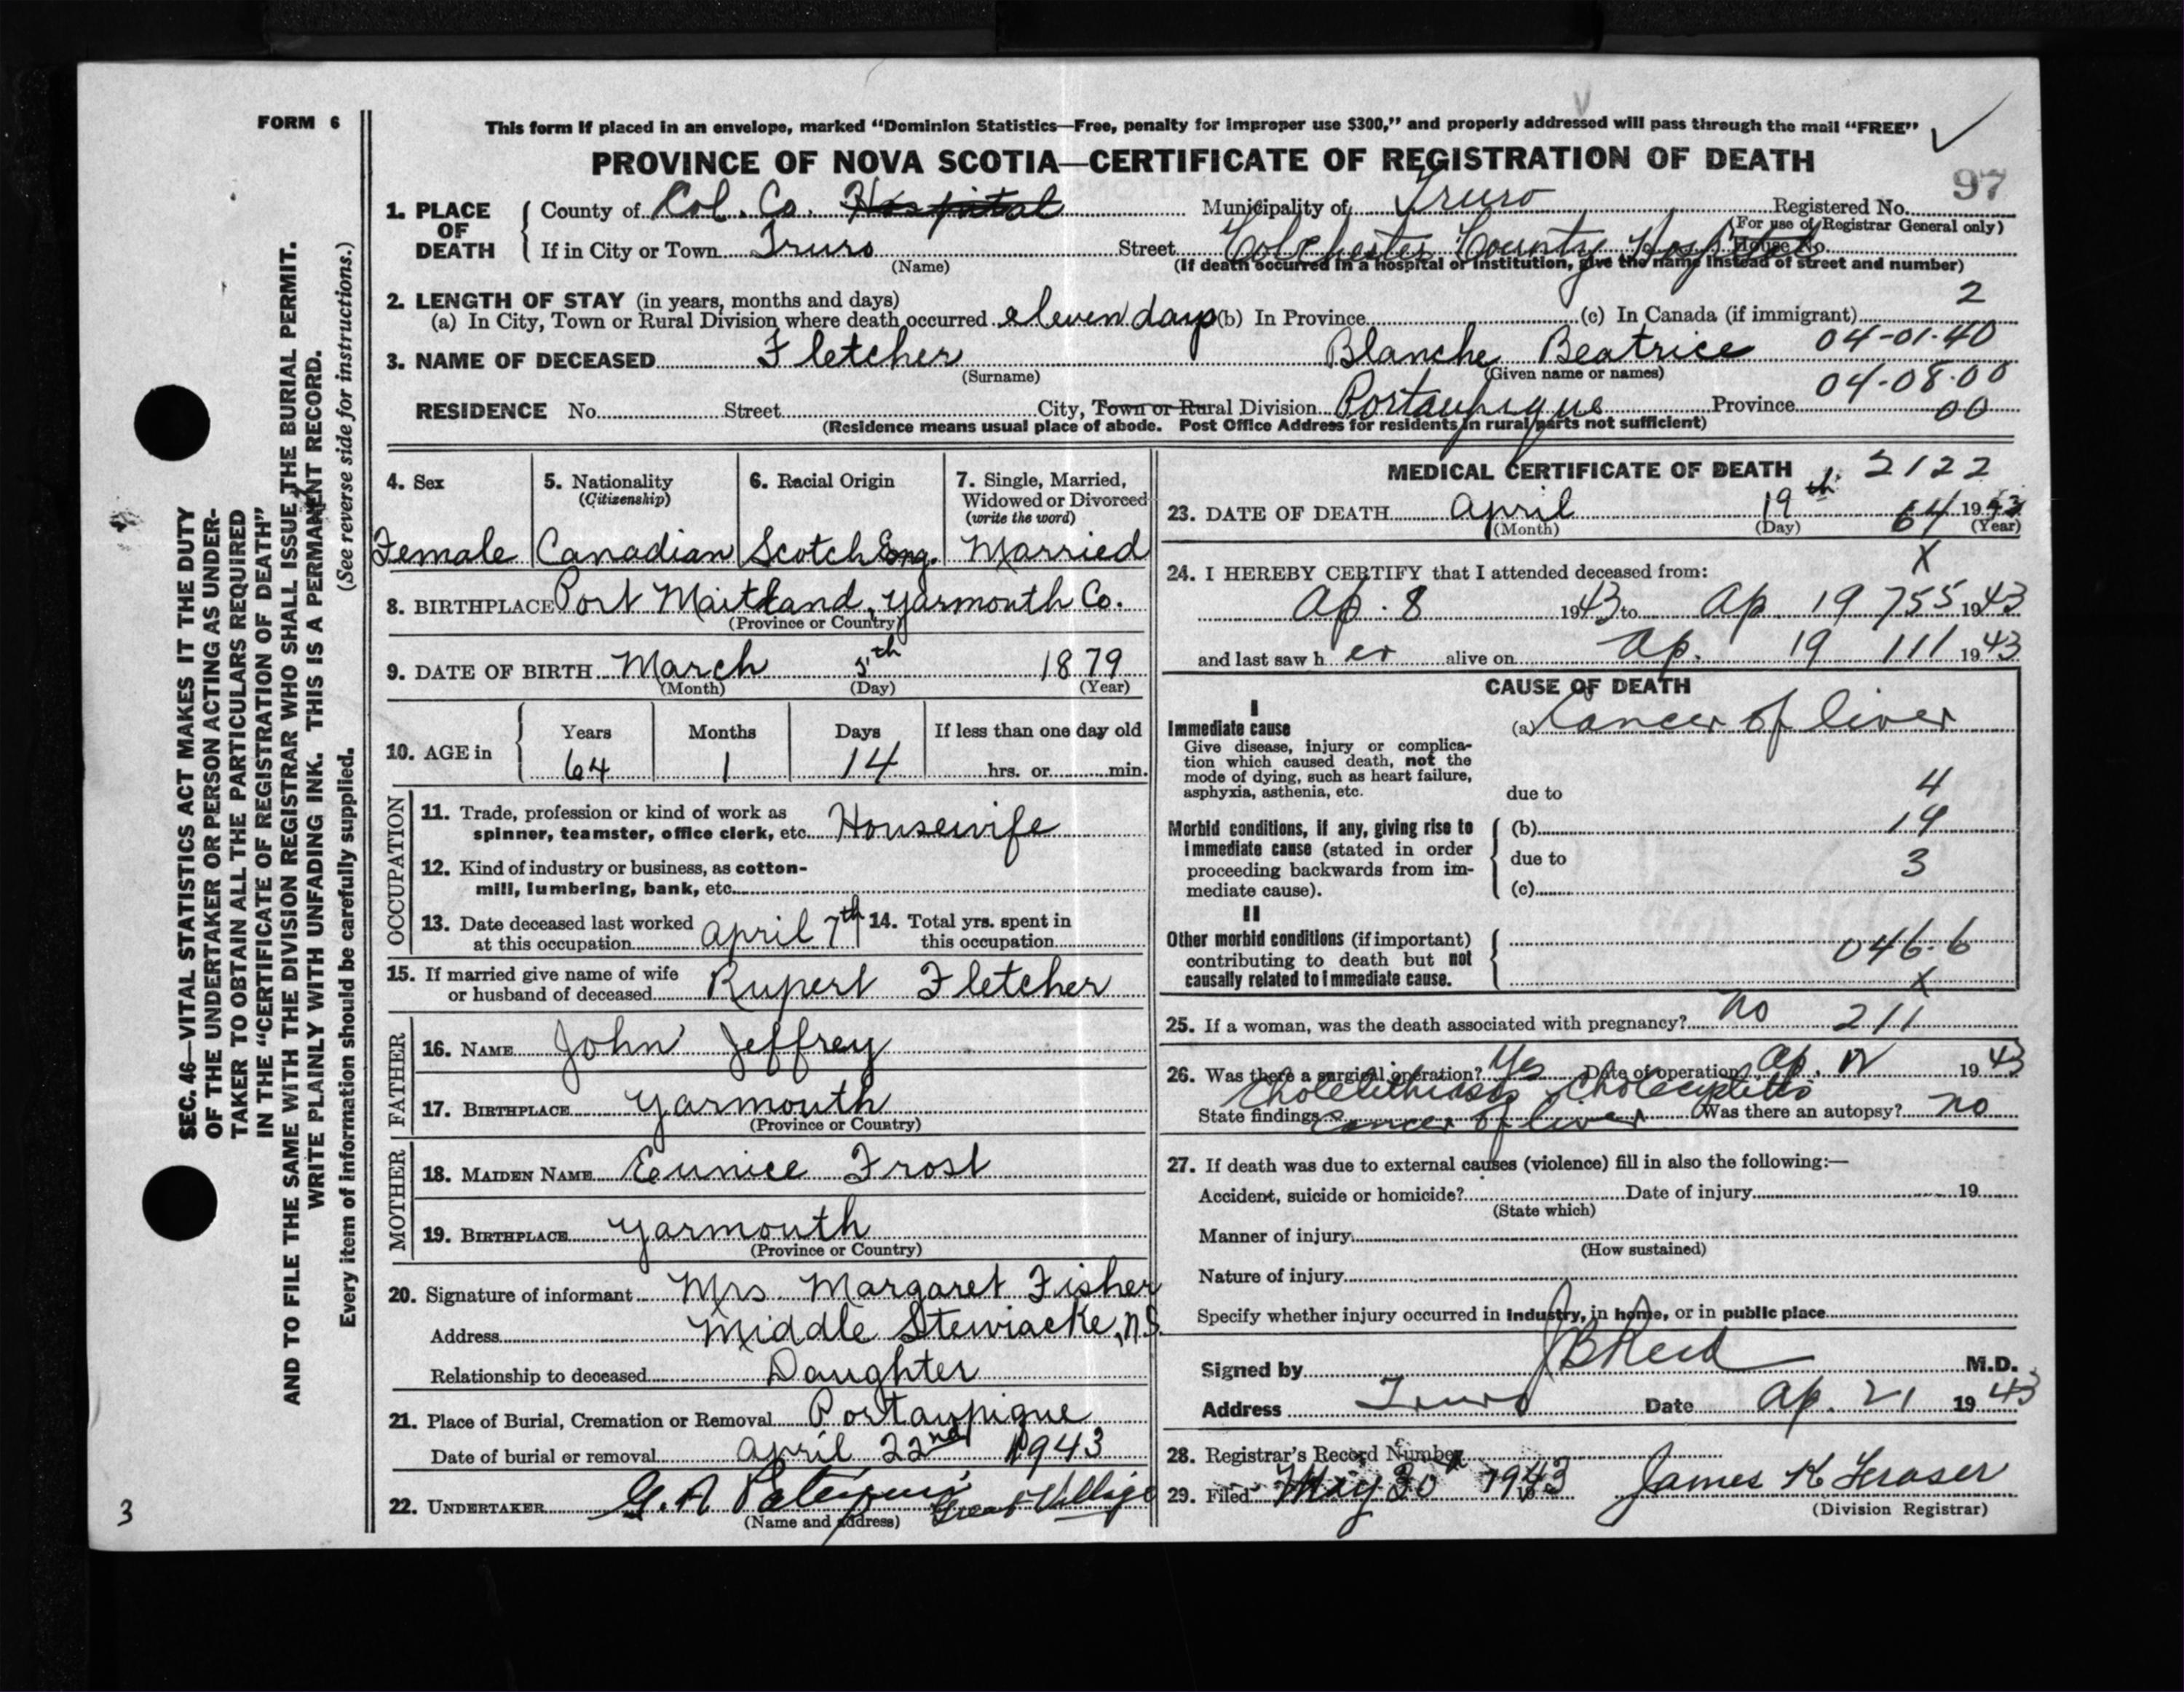 FORM 6
This form if placed in an envelope, marked "Dominion Statistics—Free, penalty for improper use $300," and properly addressed will pass through the mail "FREE"
PROVINCE OF NOVA SCOTIA—CERTIFICATE OF REGISTRATION OF DEATH
97
1. PLACE OF DEATH County of Col. Co. Hospital Municipality of Truro Registered No.
(For use of Registrar General only)
If in City or Town Truro Street Colchester County Hospital House No.
(Name) (If death occurred in a hospital or institution, give the name instead of street and number)
2. LENGTH OF STAY (in years, months and days) 2
(a) In City, Town or Rural Division where death occurred eleven days (b) In Province (c) In Canada (if immigrant)
04-01-40
3. NAME OF DECEASED Fletcher Blanche Beatrice
(Surname) (Given name or names)
04-08-00
RESIDENCE No. Street City, Town or Rural Division Portaupique Province 00
(Residence means usual place of abode. Post Office Address for residents in rural parts not sufficient)
4. Sex Female
5. Nationality (Citizenship) Canadian
6. Racial Origin Scotch Eng.
7. Single, Married, Widowed or Divorced (write the word) Married
8. BIRTHPLACE Port Maitland, Yarmouth Co.
(Province or Country)
9. DATE OF BIRTH March 5th 1879
(Month) (Day) (Year)
10. AGE in Years 64 Months 1 Days 14 If less than one day old hrs. or min.
OCCUPATION
11. Trade, profession or kind of work as
spinner, teamster, office clerk, etc. Housewife
12. Kind of industry or business, as cotton-
mill, lumbering, bank, etc.
13. Date deceased last worked at this occupation April 7th
14. Total yrs. spent in this occupation
15. If married give name of wife
or husband of deceased Rupert Fletcher
FATHER
16. NAME John Jeffrey
17. BIRTHPLACE Yarmouth
(Province or Country)
MOTHER
18. MAIDEN NAME Eunice Frost
19. BIRTHPLACE Yarmouth
(Province or Country)
20. Signature of informant Mrs. Margaret Fisher
Address Middle Stewiacke, N.S.
Relationship to deceased Daughter
21. Place of Burial, Cremation or Removal Portaupique
Date of burial or removal April 22nd 1943
22. UNDERTAKER G. A Great Village
(Name and address)
MEDICAL CERTIFICATE OF DEATH 2122
23. DATE OF DEATH April 19th 64 1943
(Month) (Day) (Year)
X
24. I HEREBY CERTIFY that I attended deceased from:
Ap. 8 1943 to Ap 19 755 1943
and last saw her alive on Ap. 19 111 1943
CAUSE OF DEATH
I
Immediate cause (a) Cancer of liver
Give disease, injury or complica-
tion which caused death, not the
mode of dying, such as heart failure,
asphyxia, asthenia, etc. due to 4
Morbid conditions, if any, giving rise to (b) 19
immediate cause (stated in order due to
proceeding backwards from im- 3
mediate cause). (c)
II
Other morbid conditions (if important)
contributing to death but not 046.6
causally related to immediate cause. X
25. If a woman, was the death associated with pregnancy? No 211
26. Was there a surgical operation? Yes Date of operation Ap. 12 1943
Cholelithiasis Cholecystitis
State findings Cancer of liver Was there an autopsy? no
27. If death was due to external causes (violence) fill in also the following:—
Accident, suicide or homicide? Date of injury 19
(State which)
Manner of injury
(How sustained)
Nature of injury
Specify whether injury occurred in industry, in home, or in public place
Signed by J B Reid M.D.
Address Truro Date Ap. 21 1943
28. Registrar's Record Number
29. Filed May 30 1943 James K Fraser
(Division Registrar)
SEC. 46—VITAL STATISTICS ACT MAKES IT THE DUTY
OF THE UNDERTAKER OR PERSON ACTING AS UNDER-
TAKER TO OBTAIN ALL THE PARTICULARS REQUIRED
IN THE "CERTIFICATE OF REGISTRATION OF DEATH"
AND TO FILE THE SAME WITH THE DIVISION REGISTRAR WHO SHALL ISSUE THE BURIAL PERMIT.
WRITE PLAINLY WITH UNFADING INK. THIS IS A PERMANENT RECORD.
Every item of information should be carefully supplied. (See reverse side for instructions.)
3